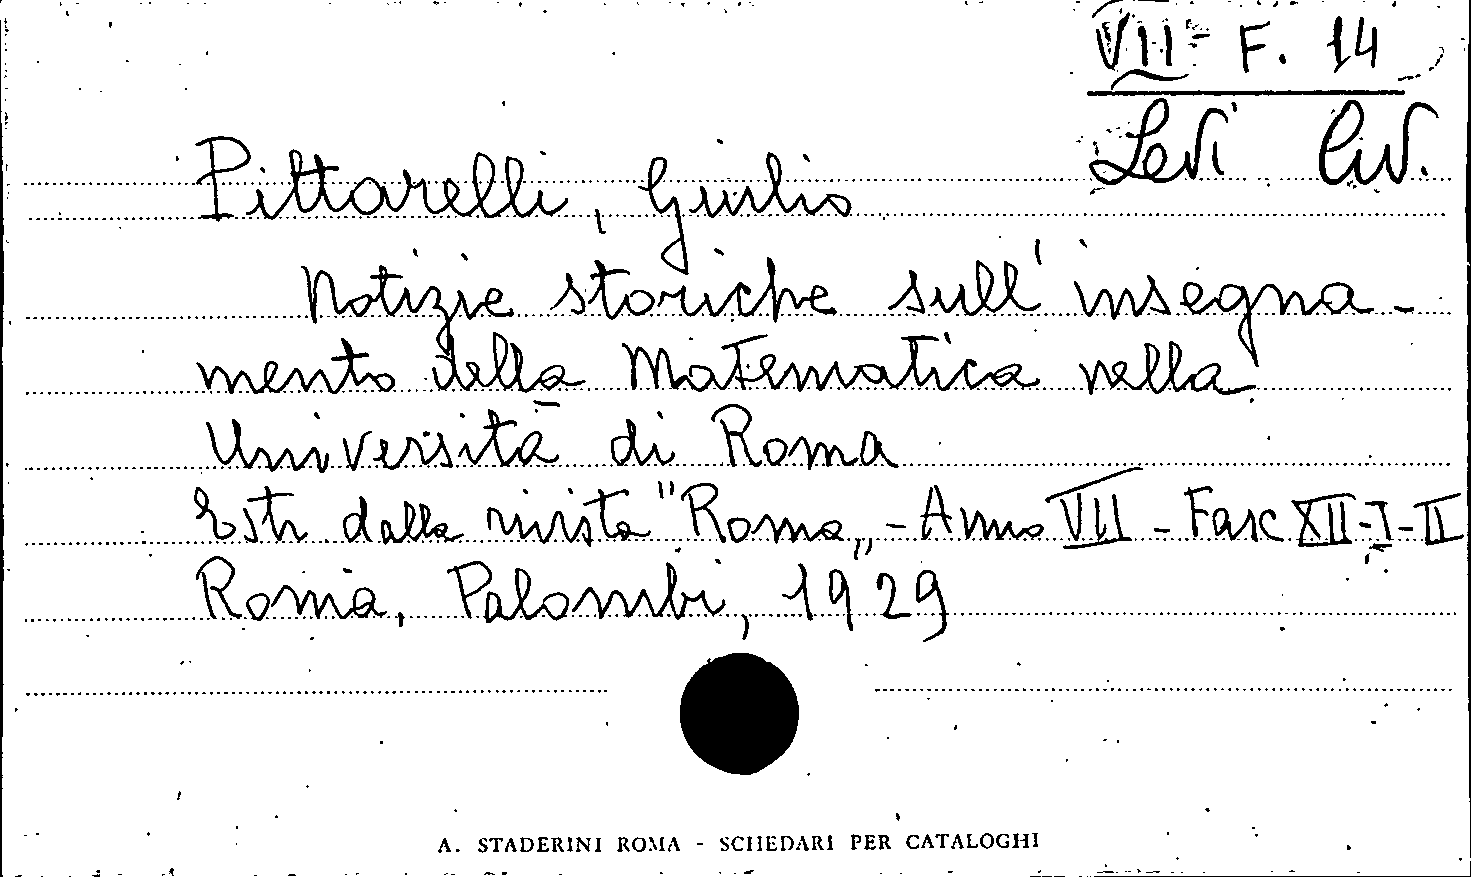 VII - F. 14
Levi Civ.
Pittarelli, Giulio
Notizie storiche sull'insegna-
mento della Matematica nella
Università di Roma
Estr. dalla rivista "Roma„ - Anno VII - Fasc XII-I-II
Roma, Palombi, 1929
A. STADERINI ROMA - SCHEDARI PER CATALOGHI